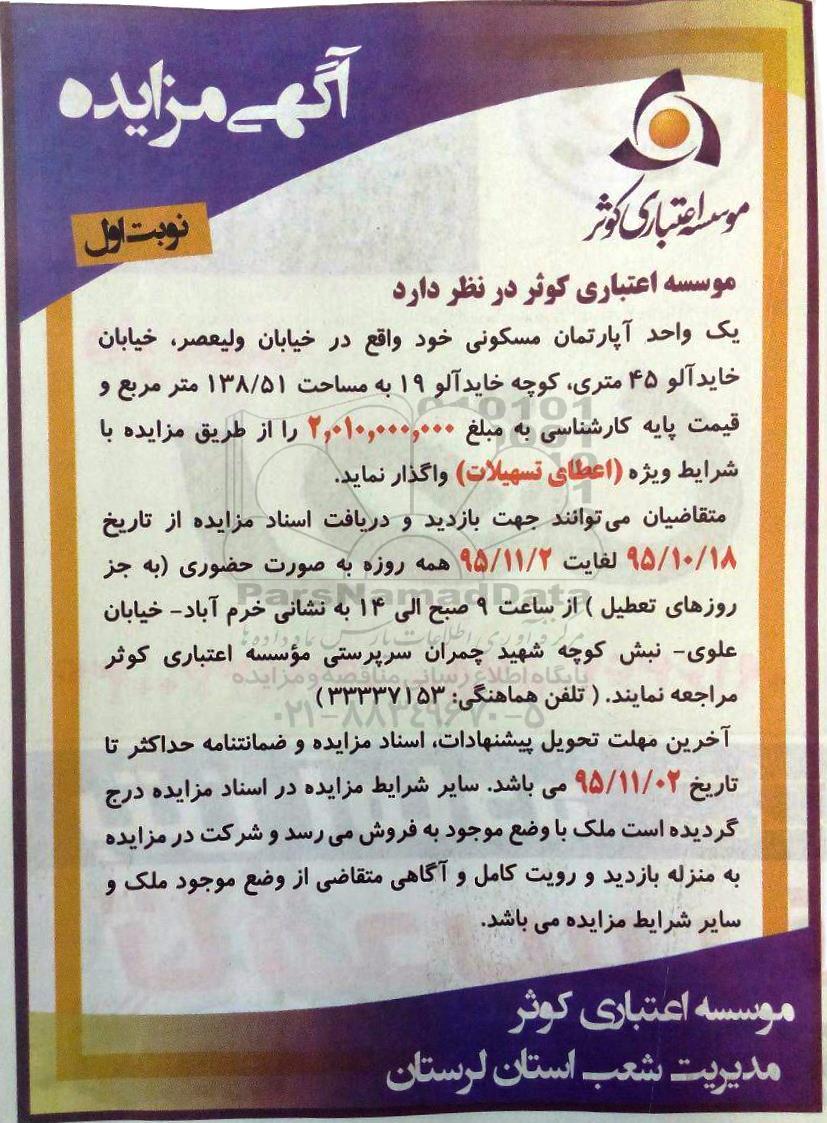 آگهی مزایده
موسسه اعتباری کوثر
نوبت اول
موسسه اعتباری کوثر در نظر دارد
یک واحد آپارتمان مسکونی خود واقع در خیابان ولیعصر، خیابان
خایدآلو ۴۵ متری، کوچه خایدآلو ۱۹ به مساحت ۱۳۸/۵۱ متر مربع و
قیمت پایه کارشناسی به مبلغ ۲,۰۱۰,۰۰۰,۰۰۰ را از طریق مزایده با
شرایط ویژه (اعطای تسهیلات) واگذار نماید.
متقاضیان می‌توانند جهت بازدید و دریافت اسناد مزایده از تاریخ
۹۵/۱۰/۱۸ لغایت ۹۵/۱۱/۲ همه روزه به صورت حضوری (به جز
روزهای تعطیل ) از ساعت ۹ صبح الی ۱۴ به نشانی خرم آباد- خیابان
علوی- نبش کوچه شهید چمران سرپرستی مؤسسه اعتباری کوثر
مراجعه نمایند. ( تلفن هماهنگی: ۳۳۳۳۷۱۵۳)
آخرین مهلت تحویل پیشنهادات، اسناد مزایده و ضمانتنامه حداکثر تا
تاریخ ۹۵/۱۱/۰۲ می باشد. سایر شرایط مزایده در اسناد مزایده درج
گردیده است ملک با وضع موجود به فروش می رسد و شرکت در مزایده
به منزله بازدید و رویت کامل و آگاهی متقاضی از وضع موجود ملک و
سایر شرایط مزایده می باشد.
موسسه اعتباری کوثر
مدیریت شعب استان لرستان
ParsNamadData
مرکز فرآوری اطلاعات پارس نماد داده ها
پایگاه اطلاع رسانی مناقصه و مزایده
۰۲۱-۸۸۳۴۹۶۷۰-۵